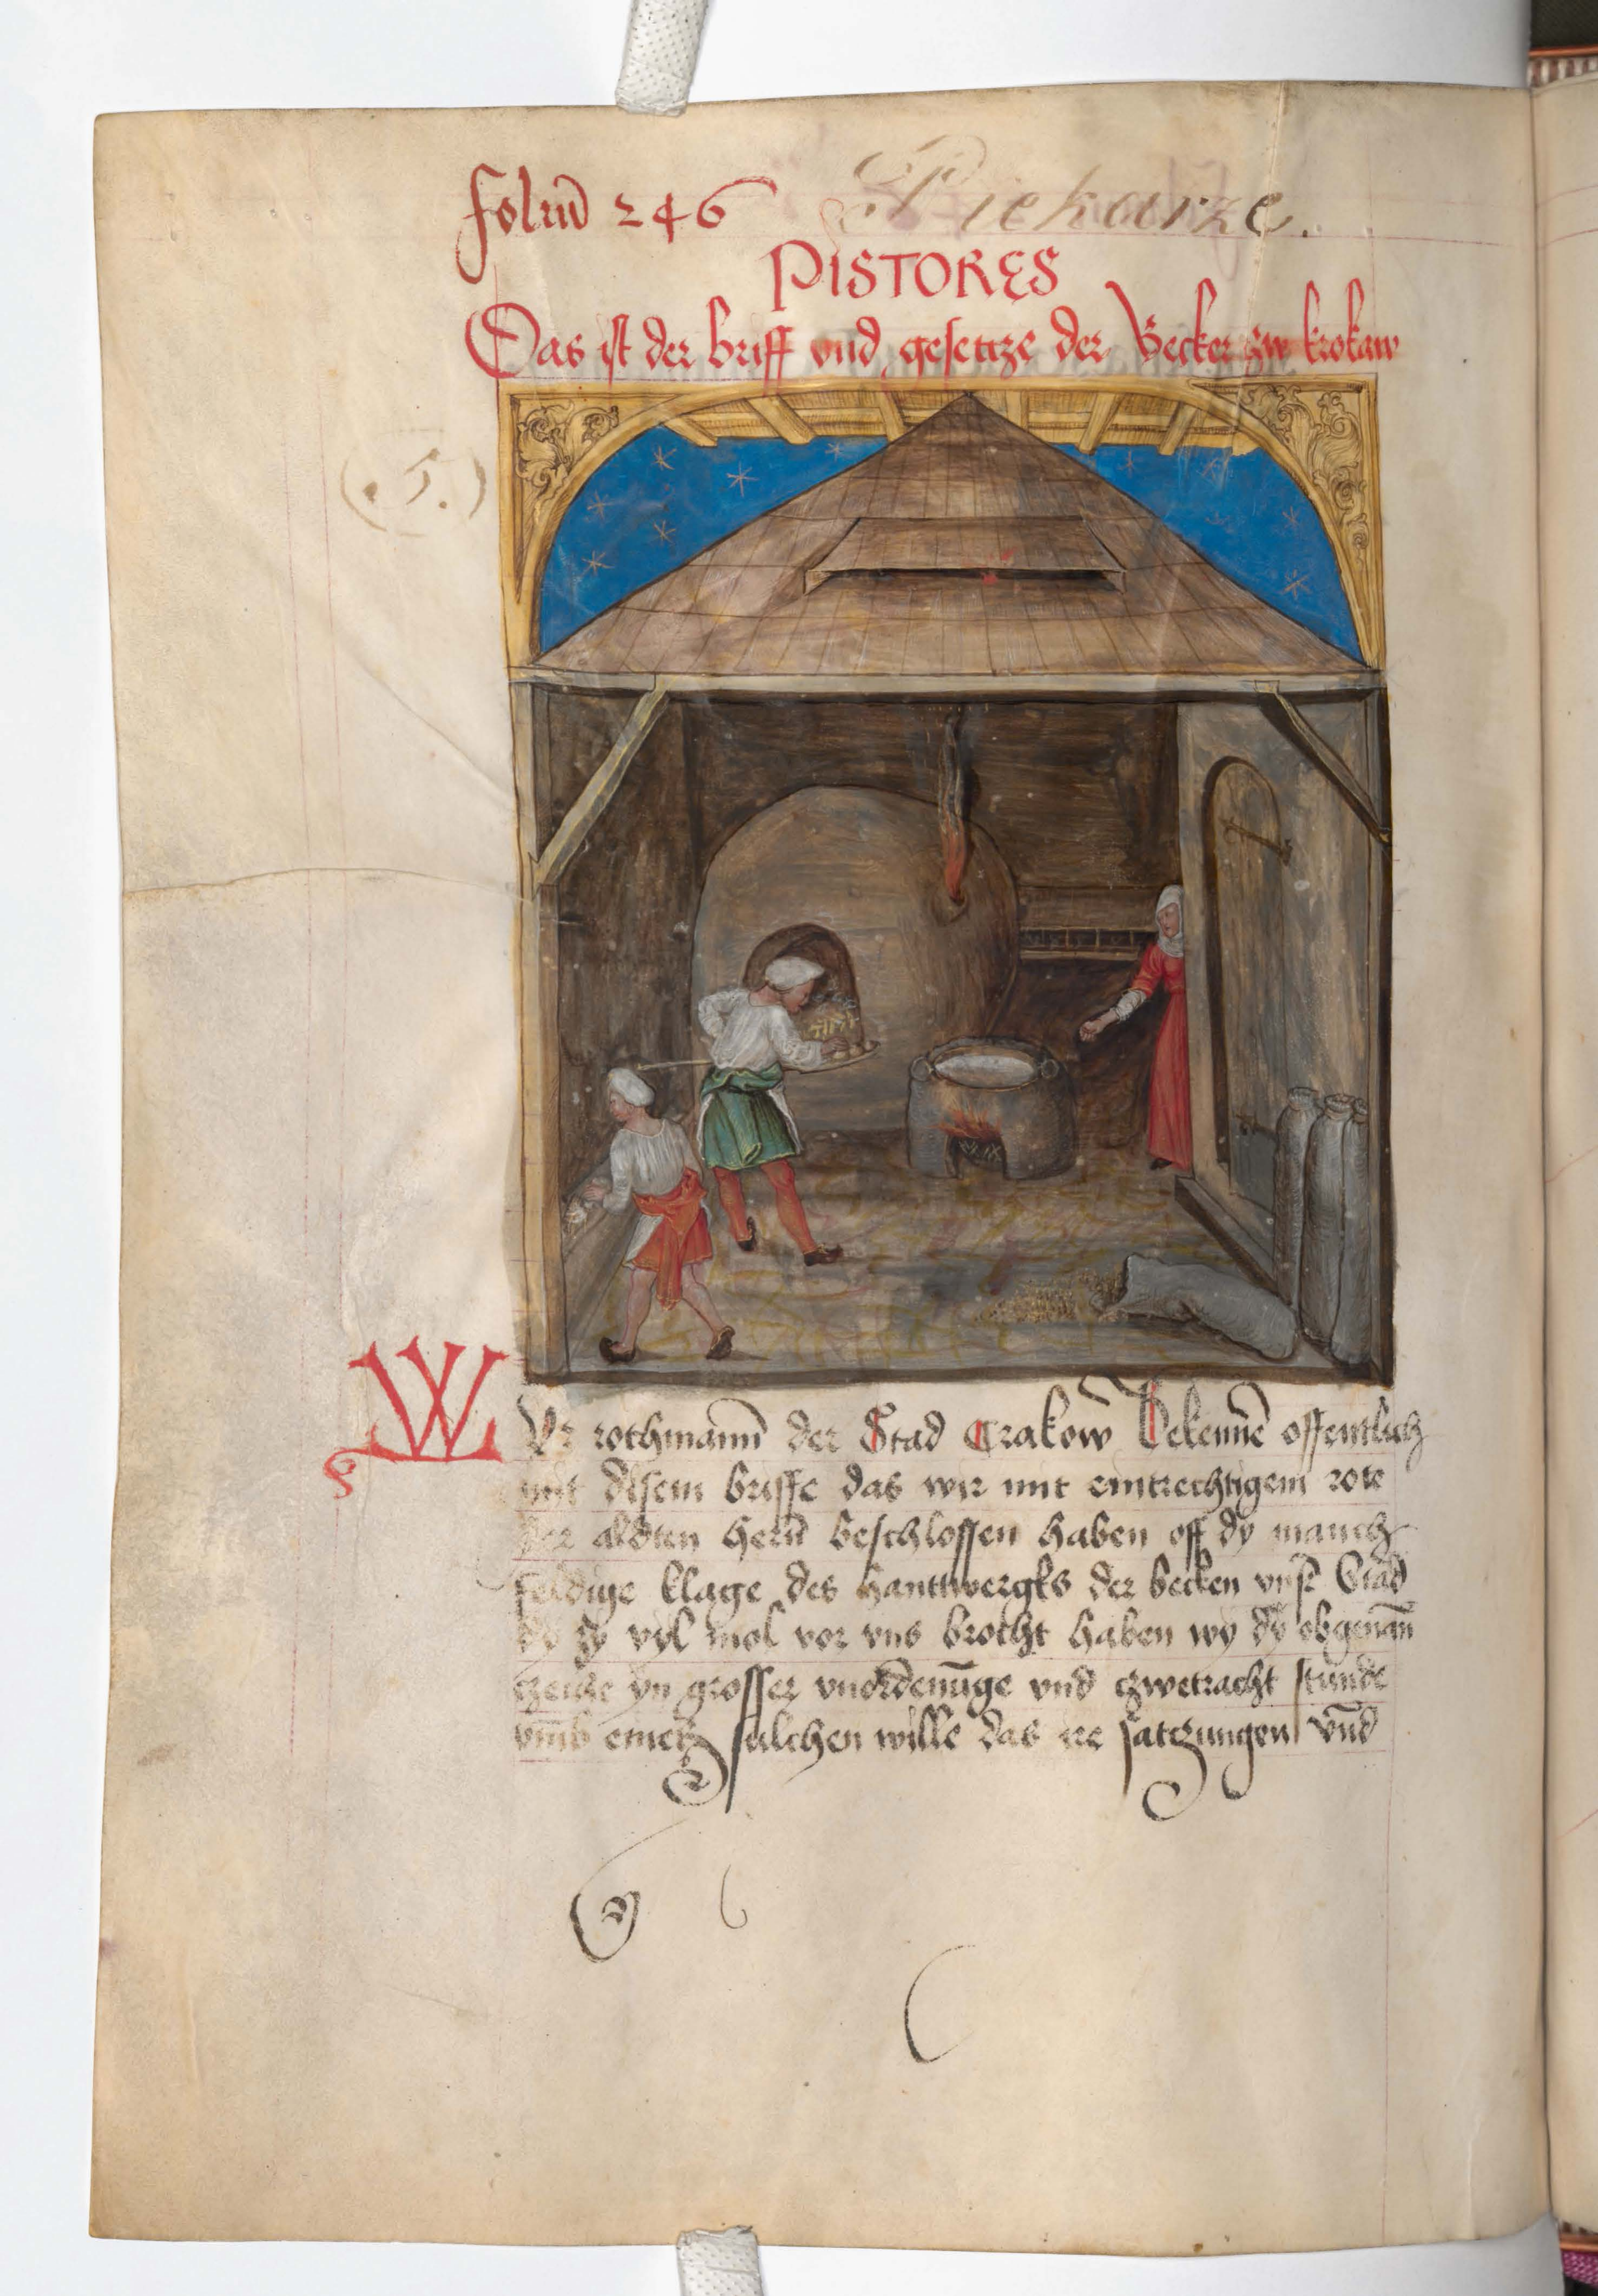 Foliū 246 Piekarze.
PISTORES
Das ist der briff vnd gesetcze der Becker zw krokaw
(. 5.)
WIr rothmann der Stad Crakow Bekenne offentlich
mit disem briffe das wir mit eintrechtigem rote
der aldten hern beschlossen haben off dy manch
feldige klage des hanttwergks der becken vnsr Stad
dy sy vyl mol vor vns brocht haben wy dy obgenan
czeche yn grosser vnordenūge vnd czwetracht stunde
vmb emer sulchen wille das ire satczungen vnd